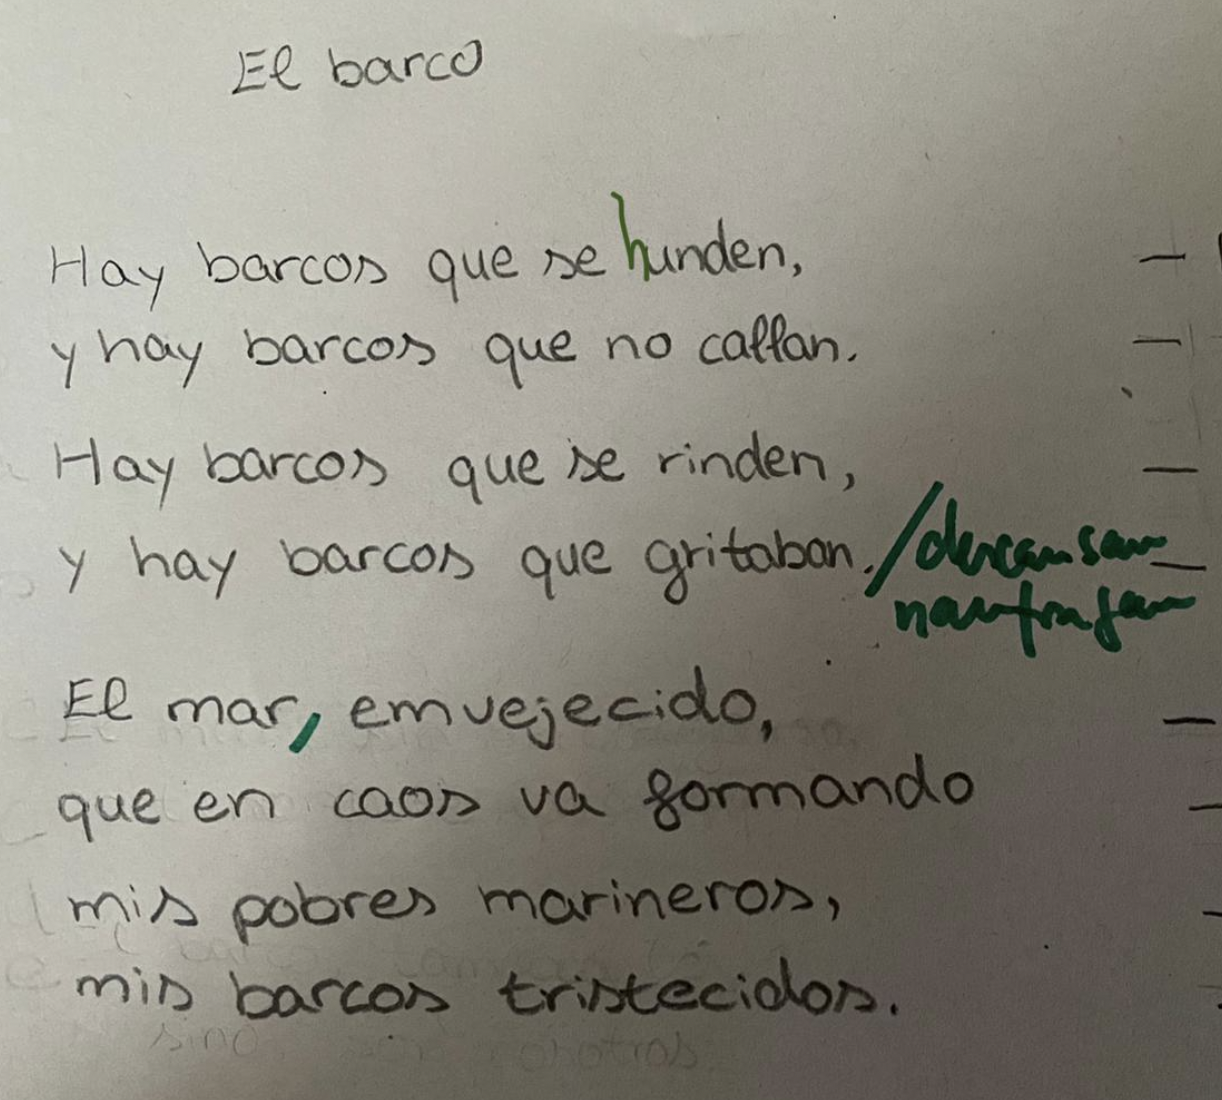 El barco
Hay barcos que se hunden,
y hay barcos que no callan.
Hay barcos que se rinden,
y hay barcos que gritaban./descansan
naufragan
El mar, emvejecido,
que en caos va formando
mis pobres marineros,
mis barcos tristecidos.